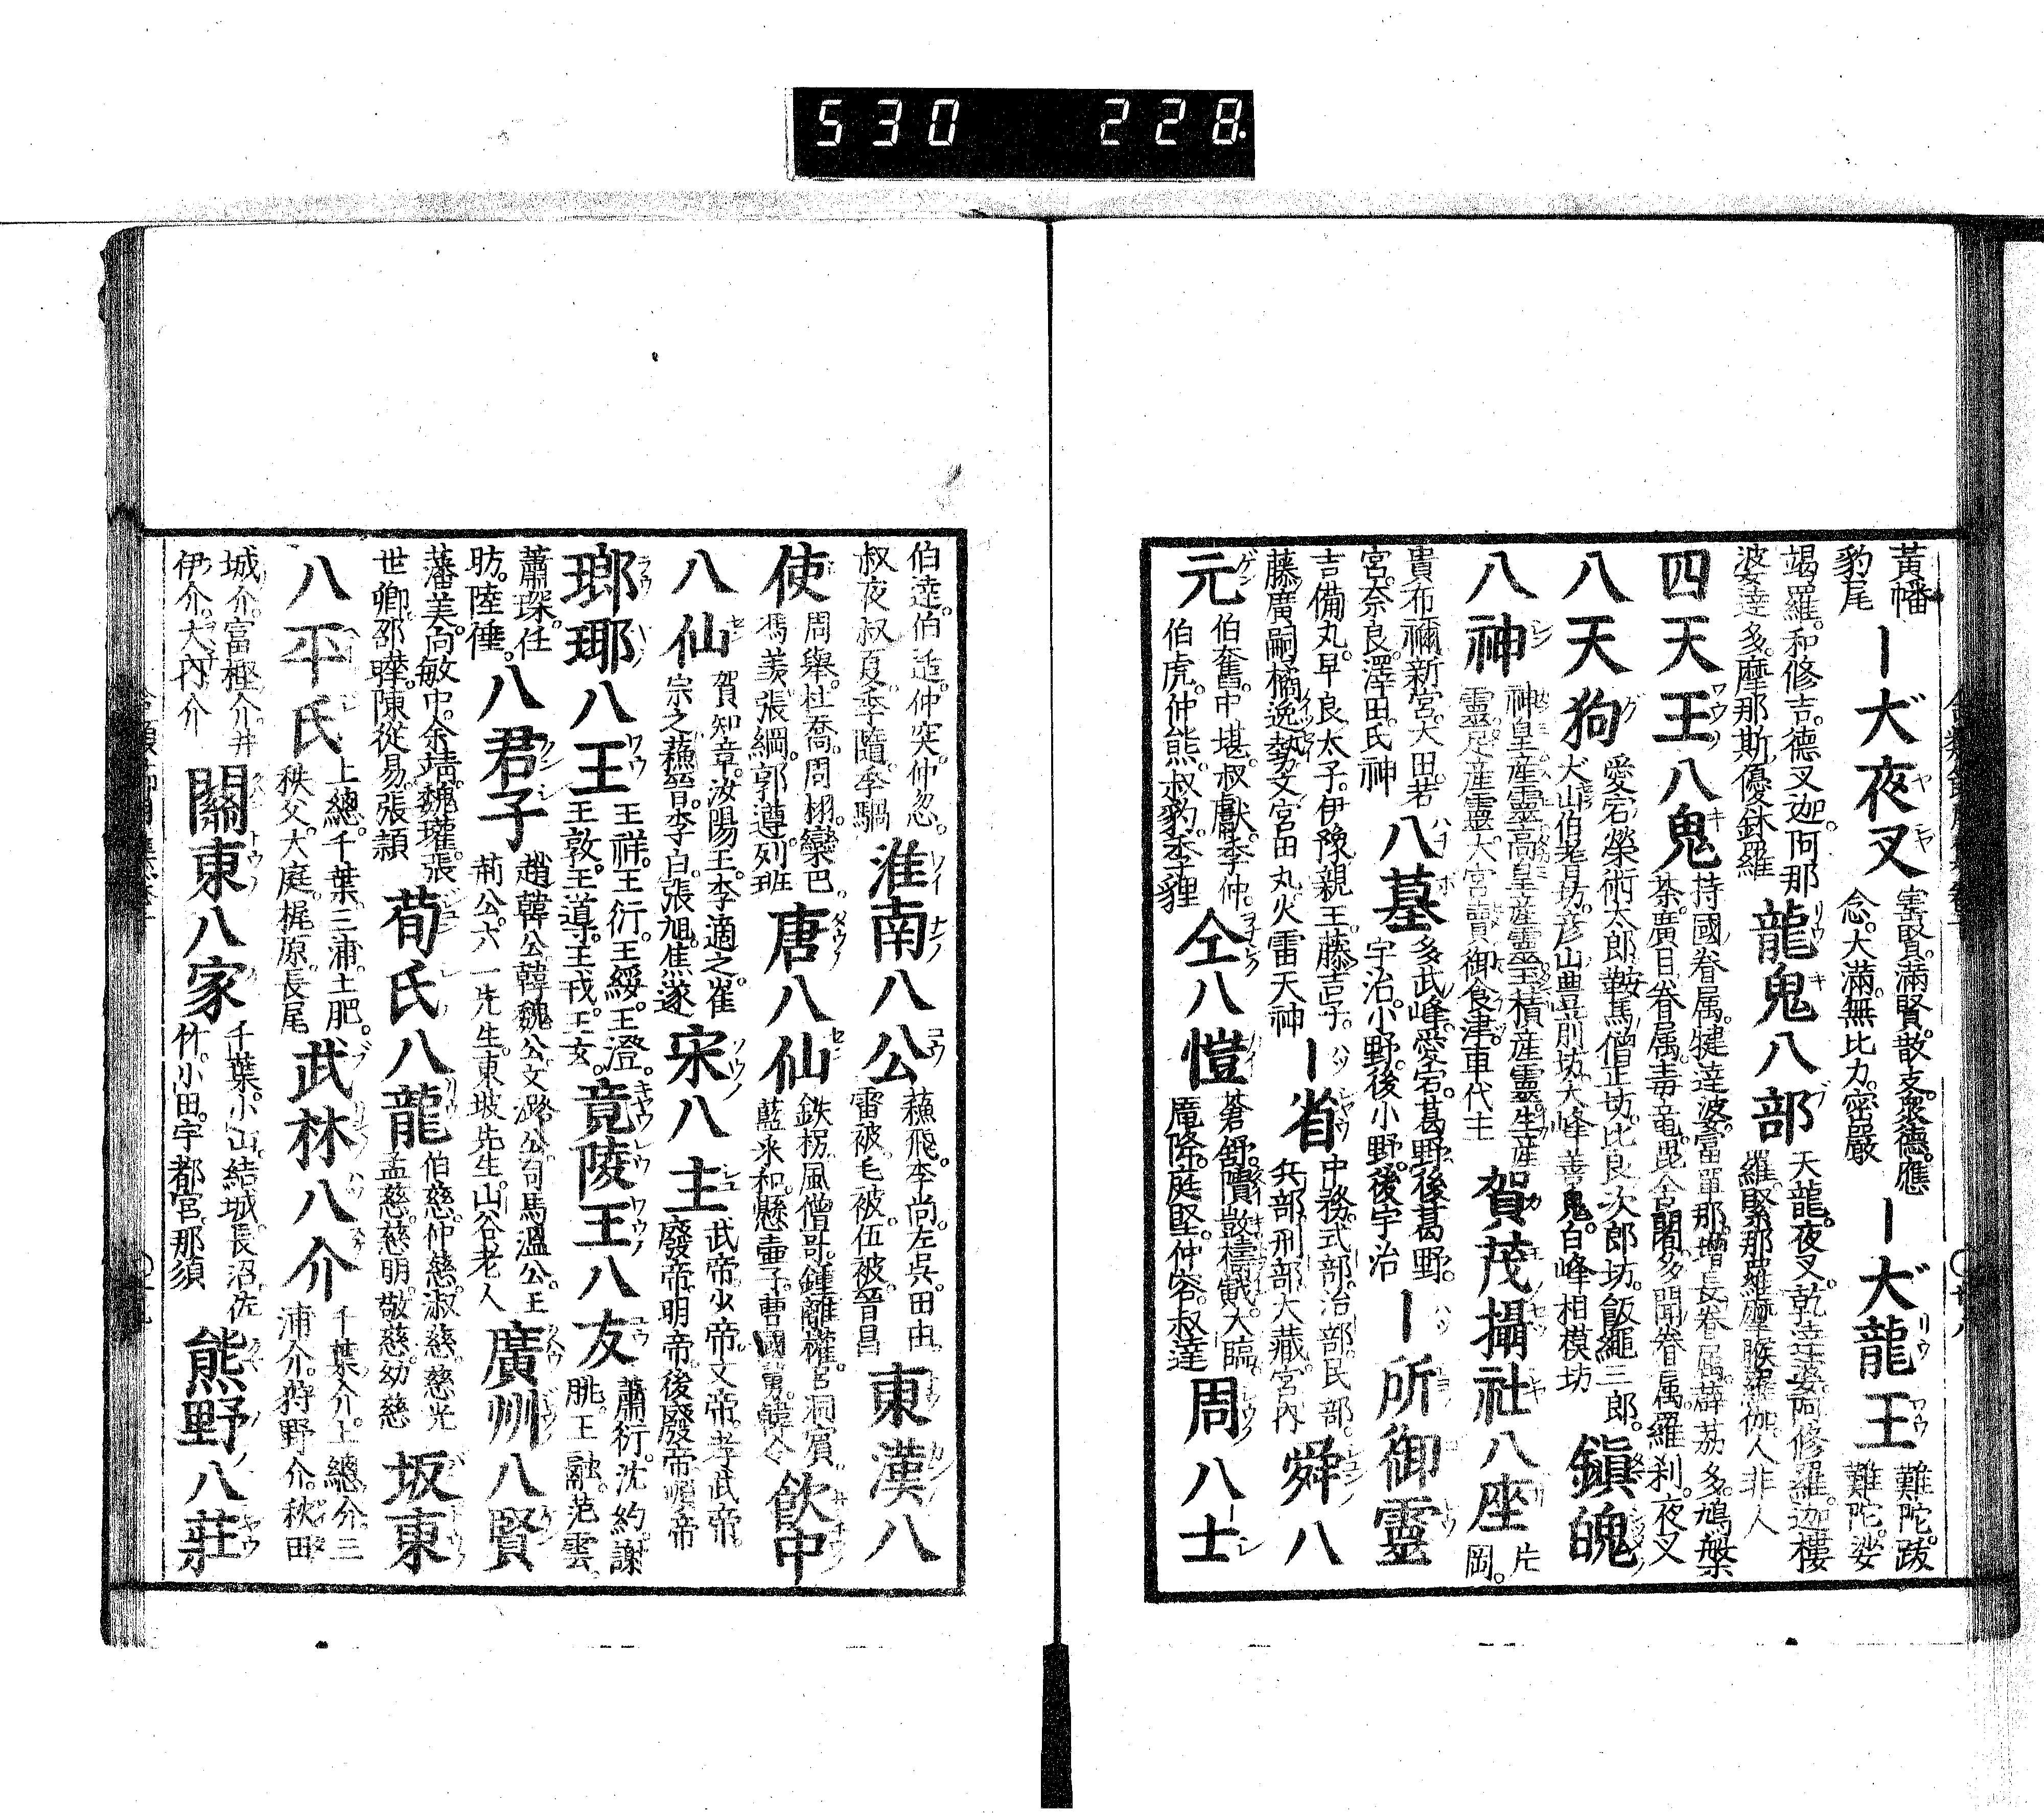 530 228
黃幡
豹尾
｜大夜叉
害賢。滿賢。散支。衆德。應
念。大滿。無比力。密嚴
｜大龍王
難陀。跋
難陀。娑
竭羅。和修吉。德叉迦。阿那
婆達多。摩那斯。優鉢羅
龍鬼八部
天龍。夜叉。乾達婆。阿修羅。迦樓
羅。緊那羅。摩睺羅伽。人非人
四天王八鬼
持國眷属。犍達婆。富單那。增長眷属。薜茘多。鳩槃
荼。廣目眷属。毒竜。毘舎闍。多聞眷属。羅刹。夜叉
八天狗
愛宕榮術太郎。鞍馬僧正坊。比良次郎坊。飯繩三郎。
大山伯耆坊。彦山豊前坊。大峰善鬼。白峰相模坊
鎭魄
八神
神皇産靈。高皇産靈。玉積産靈。生産
靈。足産靈。大宮賣。御食津。事代主
賀茂攝社八座
片
岡。
貴布禰。新宮。大田。若
宮。奈良。澤田。氏神
八墓
多武峰。愛宕。葛野。後葛野。
宇治。小野。後小野。後宇治
｜所御靈
吉備丸。早良太子。伊豫親王。藤吉子。
藤廣嗣。橘逸勢。文宮田丸。火雷天神
｜省
中務。式部。治部。民部。
兵部。刑部。大藏。宮內
舜八
元
伯奮。中堪。叔獻。季仲。
伯虎。仲熊。叔豹。季貍
仝八愷
蒼舒。隤敳。檮戭。大臨。
厖降。庭堅。仲容。叔達
周八士
伯達。伯适。仲突。仲忽。
叔夜。叔夏。季隨。季騧
淮南八公
蘇飛。李尚。左呉。田由。
雷被。毛被。伍被。晉昌
東漢八
使
周舉。杜喬。周栩。欒巴。
馮羨。張綱。郭遵。列班
唐八仙
鉄枴。風僧哥。鍾離權。呂洞賓。
藍采和。懸壷子。曹國舅。韓
飲中
八仙
賀知章。汝陽王。李適之。崔
宗之。蘇晋。李白。張旭。焦遂
宋八主
武帝。少帝。文帝。孝武帝。
廢帝。明帝。後廢帝。順帝
瑯琊八王
王祥。王衍。王綏。王澄。
王敦。王導。王戎。王玄。
竟陵王八友
蕭衍。沈約。謝
朓。王融。范雲。
蕭琛。任
昉。陸倕。
八君子
趙韓公。韓魏公。文潞公。司馬溫公。王
荊公。六一先生。東坡先生。山谷老人
廣州八賢
藩美。向敏中。余靖。魏瓘。張
世卿。邵曄。陳從易。張頴
荀氏八龍
伯慈。仲慈。淑慈。慈光
孟慈。慈明。敬慈。幼慈
坂東
八平氏
上總。千葉。三浦。土肥。
秩父。大庭。梶原。長尾
武林八介
千葉介。上總介。三
浦介。狩野介。秋田
城介。富樫介。井
伊介。大內介
關東八家
千葉。小山。結城。長沼。佐
竹。小田。宇都宮。那須
熊野八莊